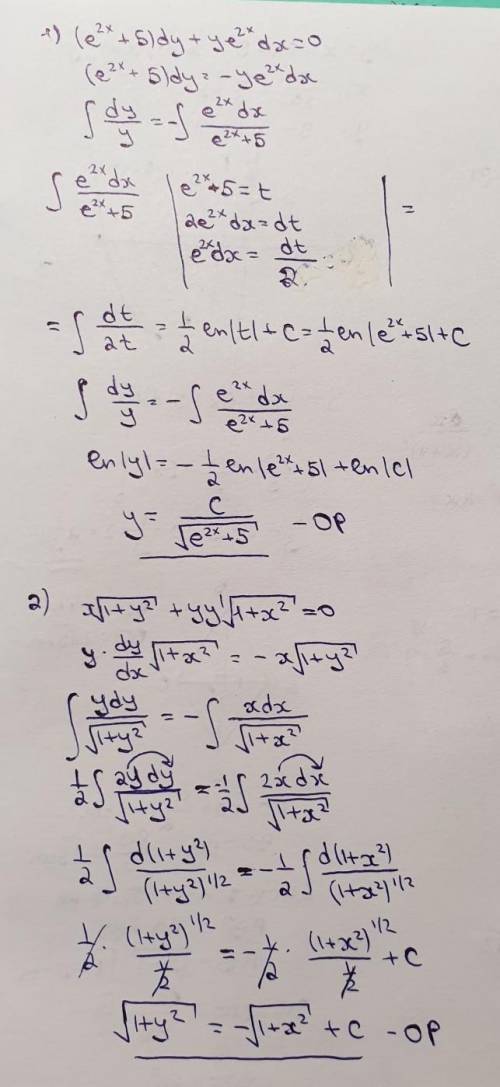 1) (e^{2x}+5)dy + ye^{2x}dx=0
(e^{2x}+5)dy = -ye^{2x}dx
∫ dy/y = -∫ e^{2x}dx/(e^{2x}+5)
∫ e^{2x}dx/(e^{2x}+5) | e^{2x}+5=t
2e^{2x}dx=dt
e^{2x}dx= dt/2 | =
= ∫ dt/2t = 1/2 ln|t| + C = 1/2 ln|e^{2x}+5| + C
∫ dy/y = -∫ e^{2x}dx/(e^{2x}+5)
ln|y| = -1/2 ln|e^{2x}+5| + ln|C|
y = C/√(e^{2x}+5) - ОР
2) x√(1+y²) + yy'√(1+x²) =0
y·dy/dx √(1+x²) = -x√(1+y²)
∫ ydy/√(1+y²) = -∫ xdx/√(1+x²)
1/2 ∫ 2ydy/√(1+y²) = -1/2 ∫ 2xdx/√(1+x²)
1/2 ∫ d(1+y²)/(1+y²)^{1/2} = -1/2 ∫ d(1+x²)/(1+x²)^{1/2}
1/2 · (1+y²)^{1/2}/(1/2) = -1/2 · (1+x²)^{1/2}/(1/2) + C
√(1+y²) = -√(1+x²) + C - ОР